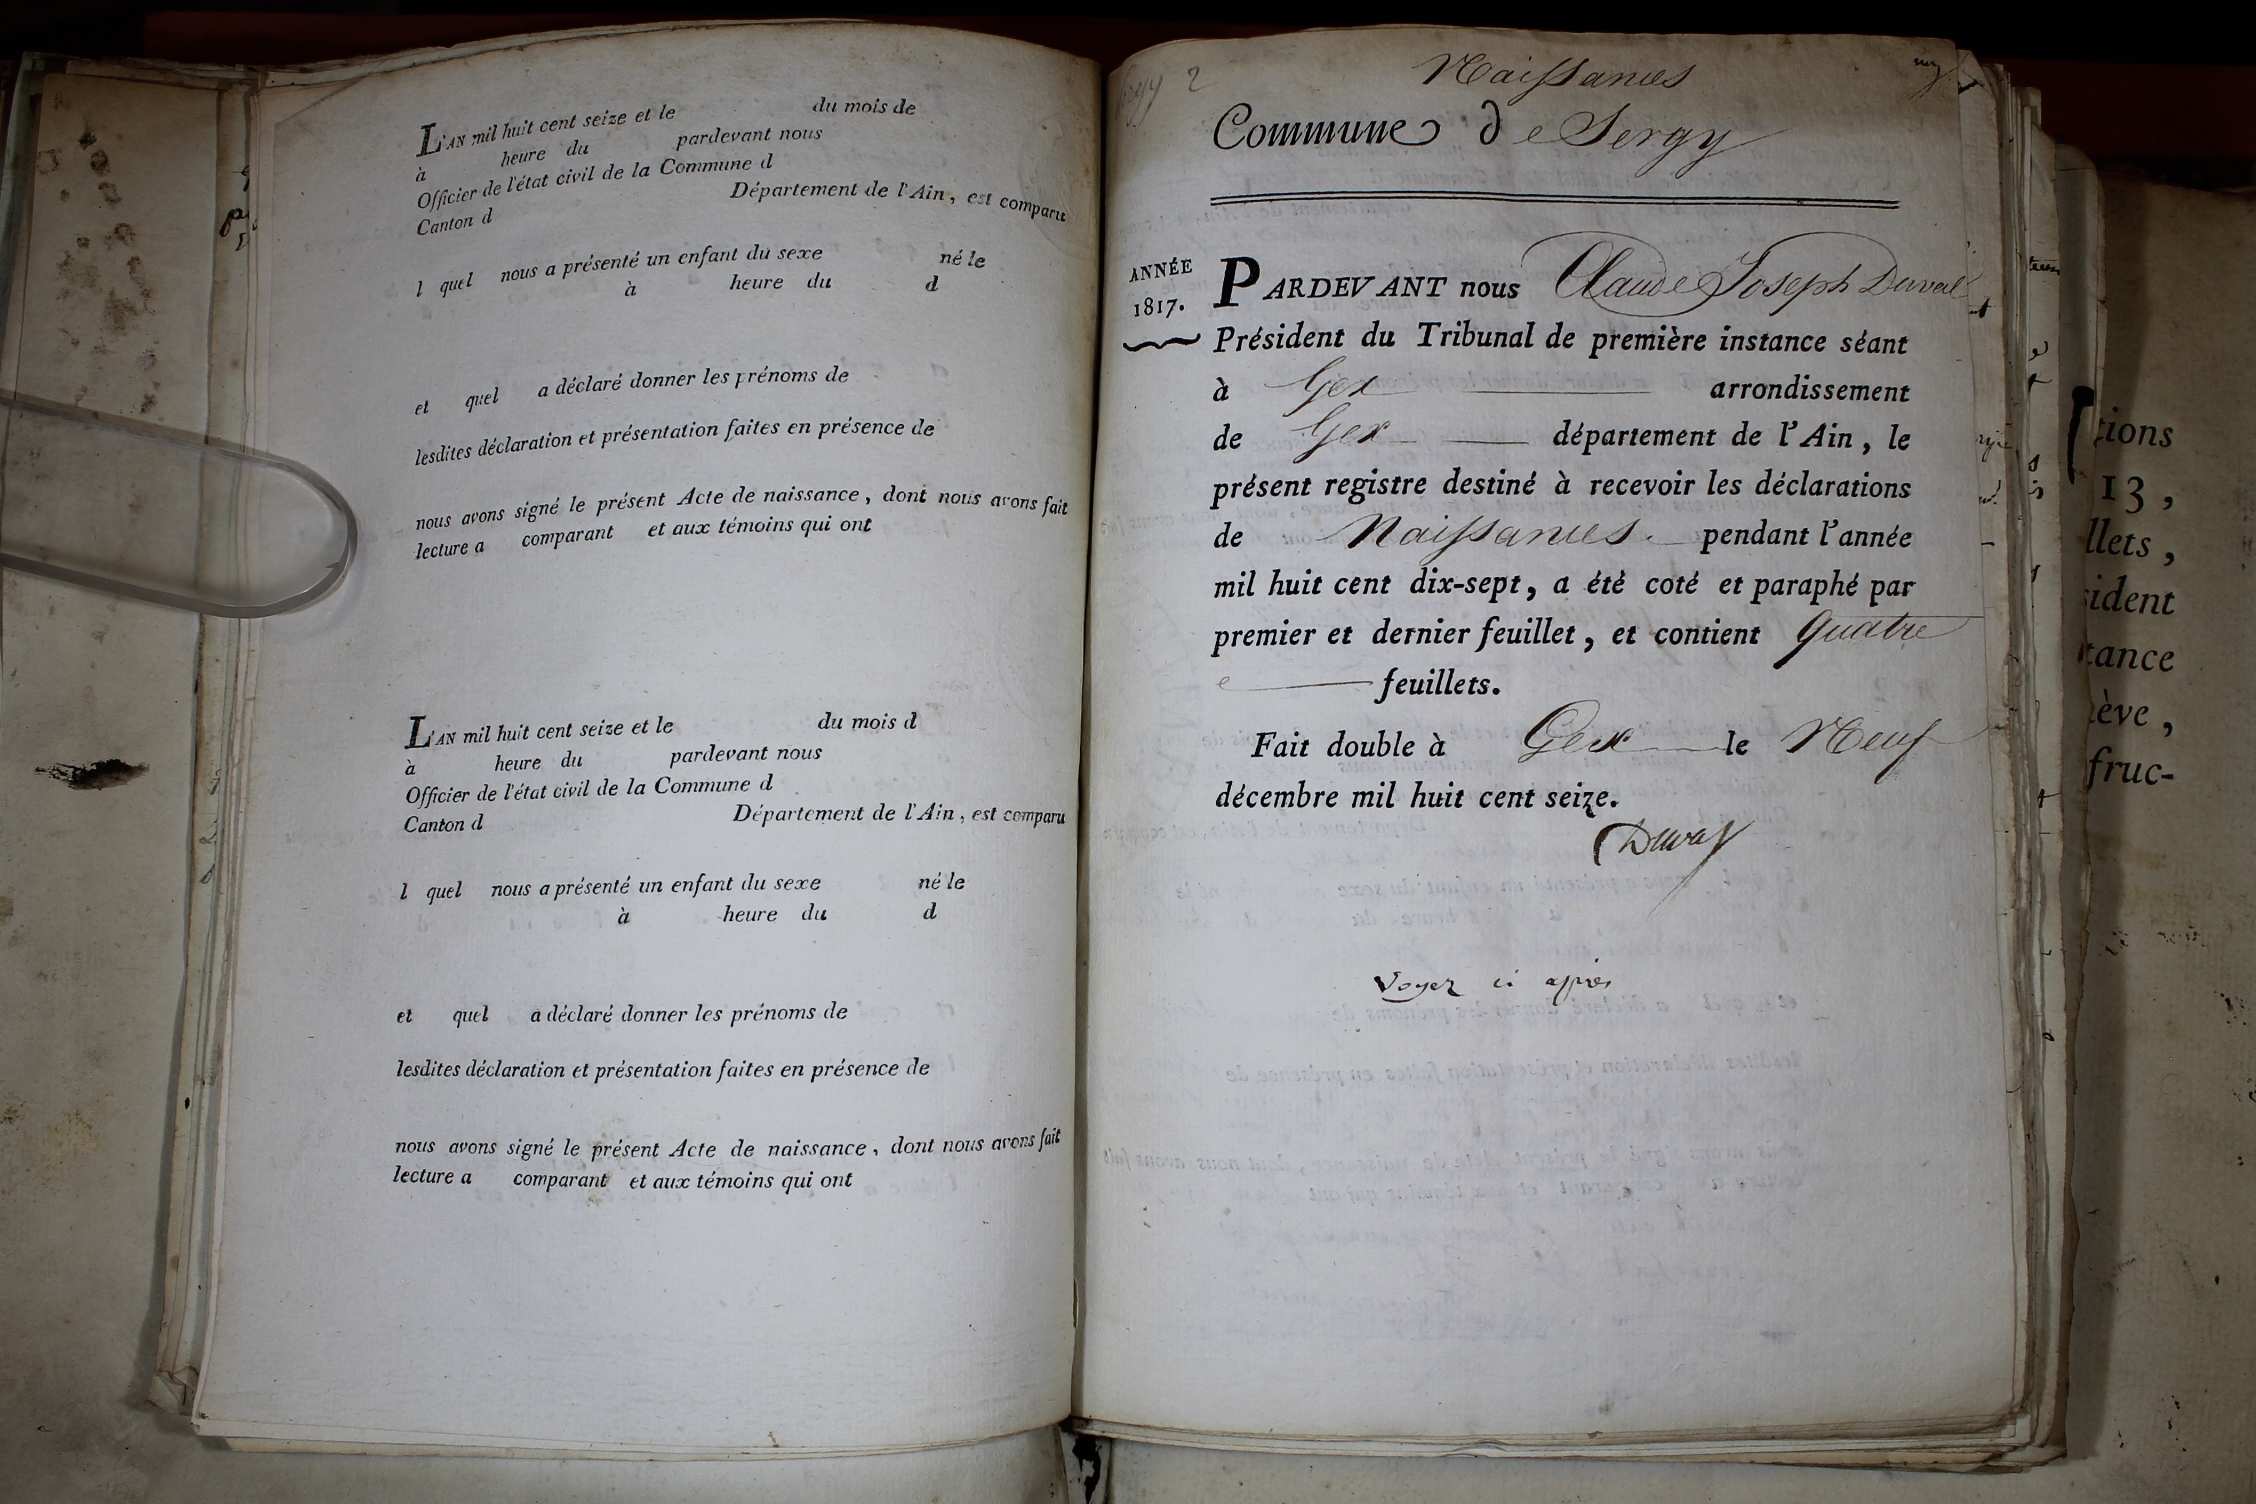 L'AN mil huit cent seize et le du mois de
à heure du pardevant nous
Officier de l'état civil de la Commune d
Canton d Département de l'Ain, est comparu
l quel nous a présenté un enfant du sexe né le
à heure du d
et quel a déclaré donner les prénoms de
lesdites déclaration et présentation faites en présence de
nous avons signé le présent Acte de naissance, dont nous avons fait
lecture a comparant et aux témoins qui ont
L'AN mil huit cent seize et le du mois d
à heure du pardevant nous
Officier de l'état civil de la Commune d
Canton d Département de l'Ain, est comparu
l quel nous a présenté un enfant du sexe né le
à heure du d
et quel a déclaré donner les prénoms de
lesdites déclaration et présentation faites en présence de
nous avons signé le présent Acte de naissance, dont nous avons fait
lecture a comparant et aux témoins qui ont
2
Naissances
Commune de Sergy
ANNÉE
1817.
PARDEVANT nous Claude Joseph Duval
Président du Tribunal de première instance séant
à Gex arrondissement
de Gex département de l'Ain, le
présent registre destiné à recevoir les déclarations
de Naissances. pendant l'année
mil huit cent dix-sept, a été coté et paraphé par
premier et dernier feuillet, et contient quatre
feuillets.
Fait double à Gex le Neuf
décembre mil huit cent seize.
Duval
Voyez ci après
tions
13,
llets,
sident
tance
ève,
fruc-